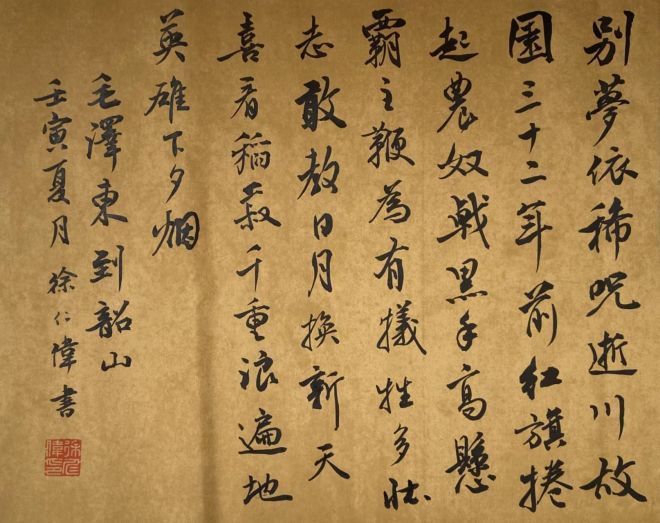 別夢依稀呪逝川故
園三十二年前紅旗捲
起農奴戟黑手高懸
霸主鞭為有犧牲多壯
志敢教日月換新天
喜看稻菽千重浪遍地
英雄下夕烟
毛澤東到韶山
壬寅夏月 徐仁偉書
徐仁偉印